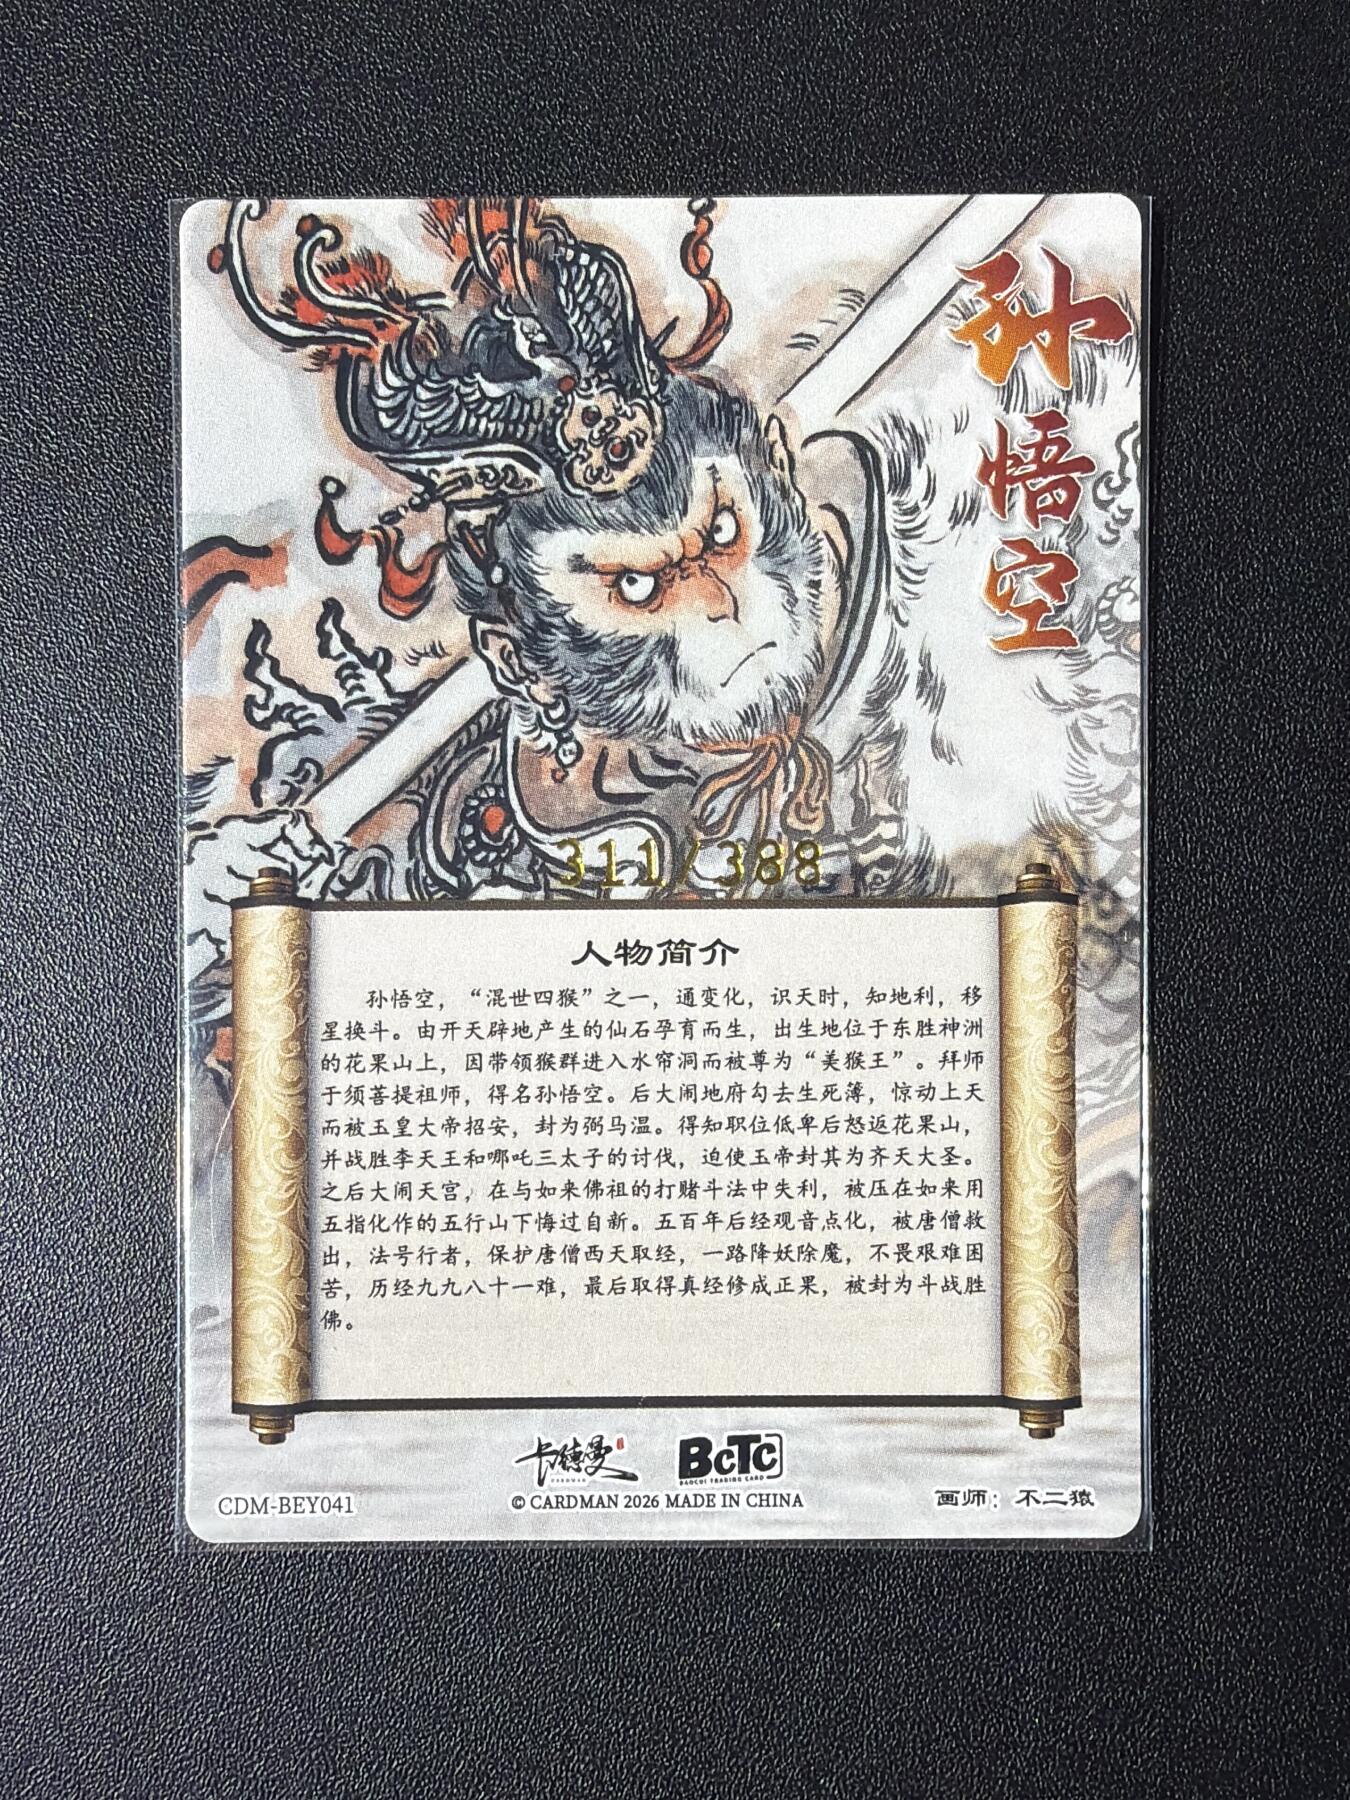 孙悟空
311/388
人物简介
孙悟空，“混世四猴”之一，通变化，识天时，知地利，移
星换斗。由开天辟地产生的仙石孕育而生，出生地位于东胜神洲
的花果山上，因带领猴群进入水帘洞而被尊为“美猴王”。拜师
于须菩提祖师，得名孙悟空。后大闹地府勾去生死薄，惊动上天
而被玉皇大帝招安，封为弼马温。得知职位低卑后怒返花果山，
并战胜李天王和哪吒三太子的讨伐，迫使玉帝封其为齐天大圣。
之后大闹天宫，在与如来佛祖的打赌斗法中失利，被压在如来用
五指化作的五行山下悔过自新。五百年后经观音点化，被唐僧救
出，法号行者，保护唐僧西天取经，一路降妖除魔，不畏艰难困
苦，历经九九八十一难，最后取得真经修成正果，被封为斗战胜
佛。
卡德曼
CARDMAN
BCTC
BAOCUI TRADING CARD
CDM-BEY041
© CARDMAN 2026 MADE IN CHINA
画师：不二猿